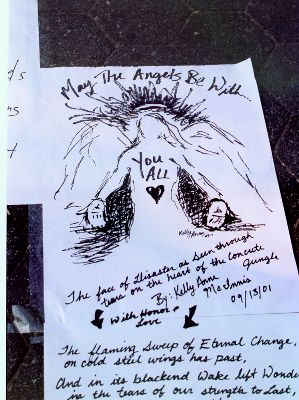 May The Angels Be With...
You
ALL
Kelly Anne
The face of Disaster as seen through
tears on the heart of the Concrete
Jungle
By: Kelly Anne
McInnis
09/13/01
With Honor &
Love
The flaming Sweep of Eternal Change,
on cold steel wings has past,
And in its blackend Wake left Wonder
in the tears of our strength to Last,